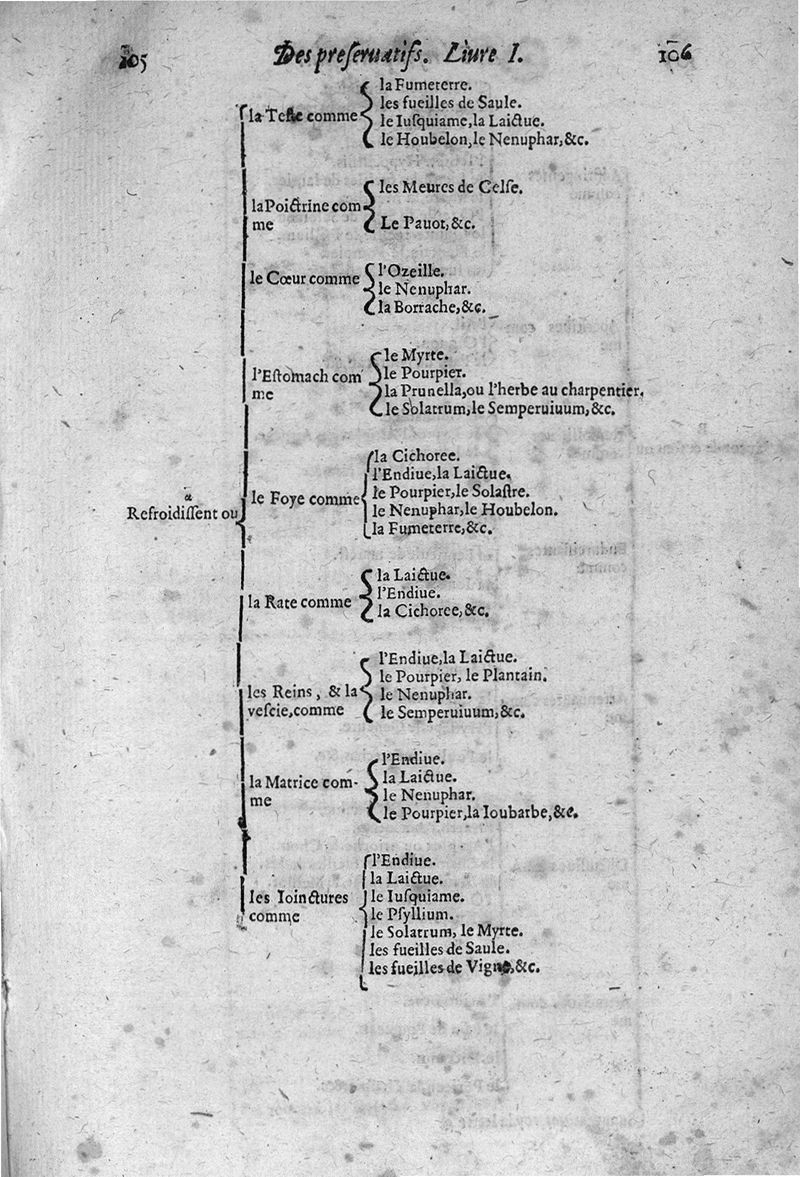 105 Des preſeruatifs. Liure I. 106
la Teſte comme
la Fumeterre.
les fueilles de Saule.
le Iuſquiame, la Laictue.
le Houbelon, le Nenuphar, &c.
la Poictrine com
me
les Meures de Celſe.
Le Pauot, &c.
le Cœur comme
l'Ozeille.
le Nenuphar.
la Borrache, &c.
l'Eſtomach com
me
le Myrte.
le Pourpier.
la Prunella, ou l'herbe au charpentier.
le Solatrum, le Semperuiuum, &c.
a
Refroidiſſent ou
le Foye comme
la Cichoree.
l'Endiue, la Laictue.
le Pourpier, le Solaſtre.
le Nenuphar, le Houbelon.
la Fumeterre, &c.
la Rate comme
la Laictue.
l'Endiue.
la Cichoree, &c.
les Reins, & la
veſcie, comme
l'Endiue, la Laictue.
le Pourpier, le Plantain.
le Nenuphar.
le Semperuiuum, &c.
la Matrice com-
me
l'Endiue.
la Laictue.
le Nenuphar.
le Pourpier, la Ioubarbe, &c.
les Ioinctures
comme
l'Endiue.
la Laictue.
le Iuſquiame.
le Pſyllium.
le Solatrum, le Myrte.
les fueilles de Saule.
les fueilles de Vigne, &c.